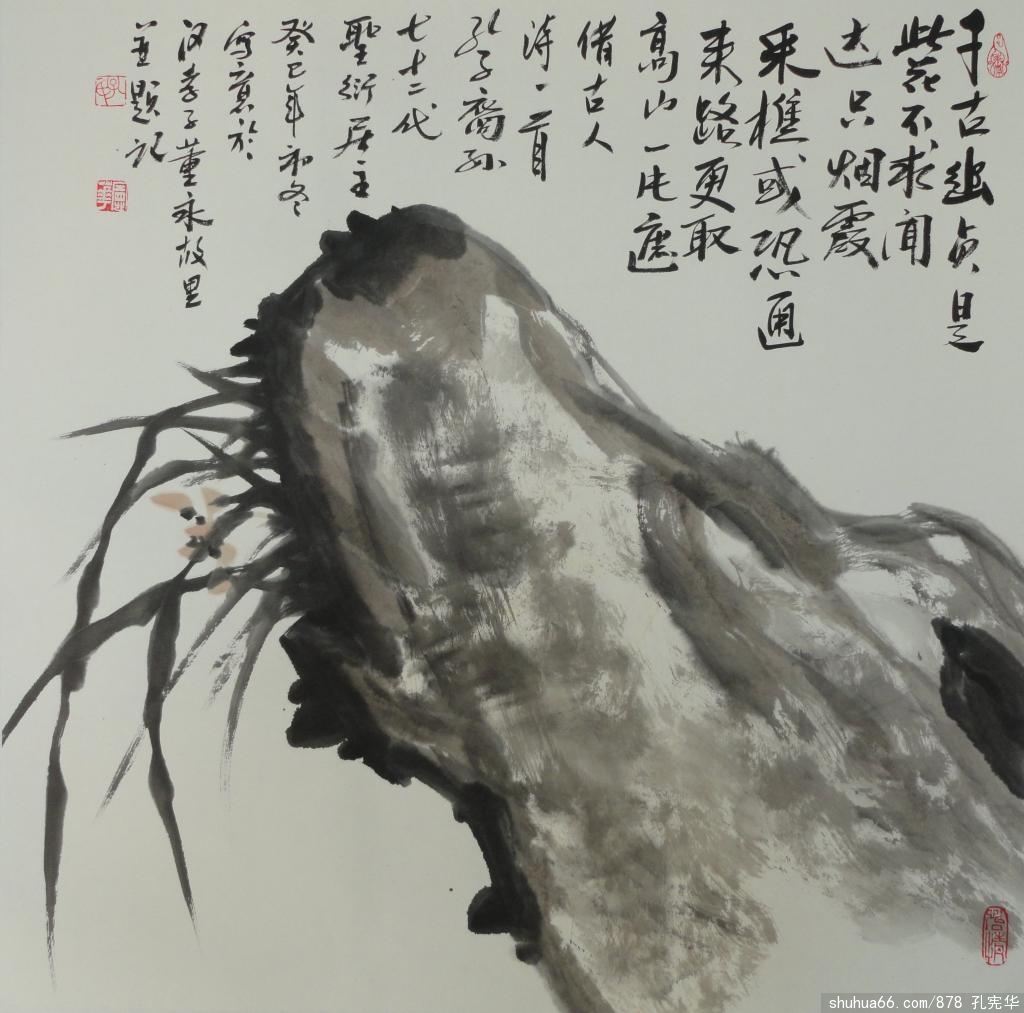 千古幽贞是
此花不求闻
达只烟霞
采樵或恐通
来路更取
高山一片遮
借古人
诗一首
孔子裔孙
七十二代
聖衍居主
癸巳年初冬
写意於
汉孝子董永故里
並题记
shuhua66.com/878 孔宪华